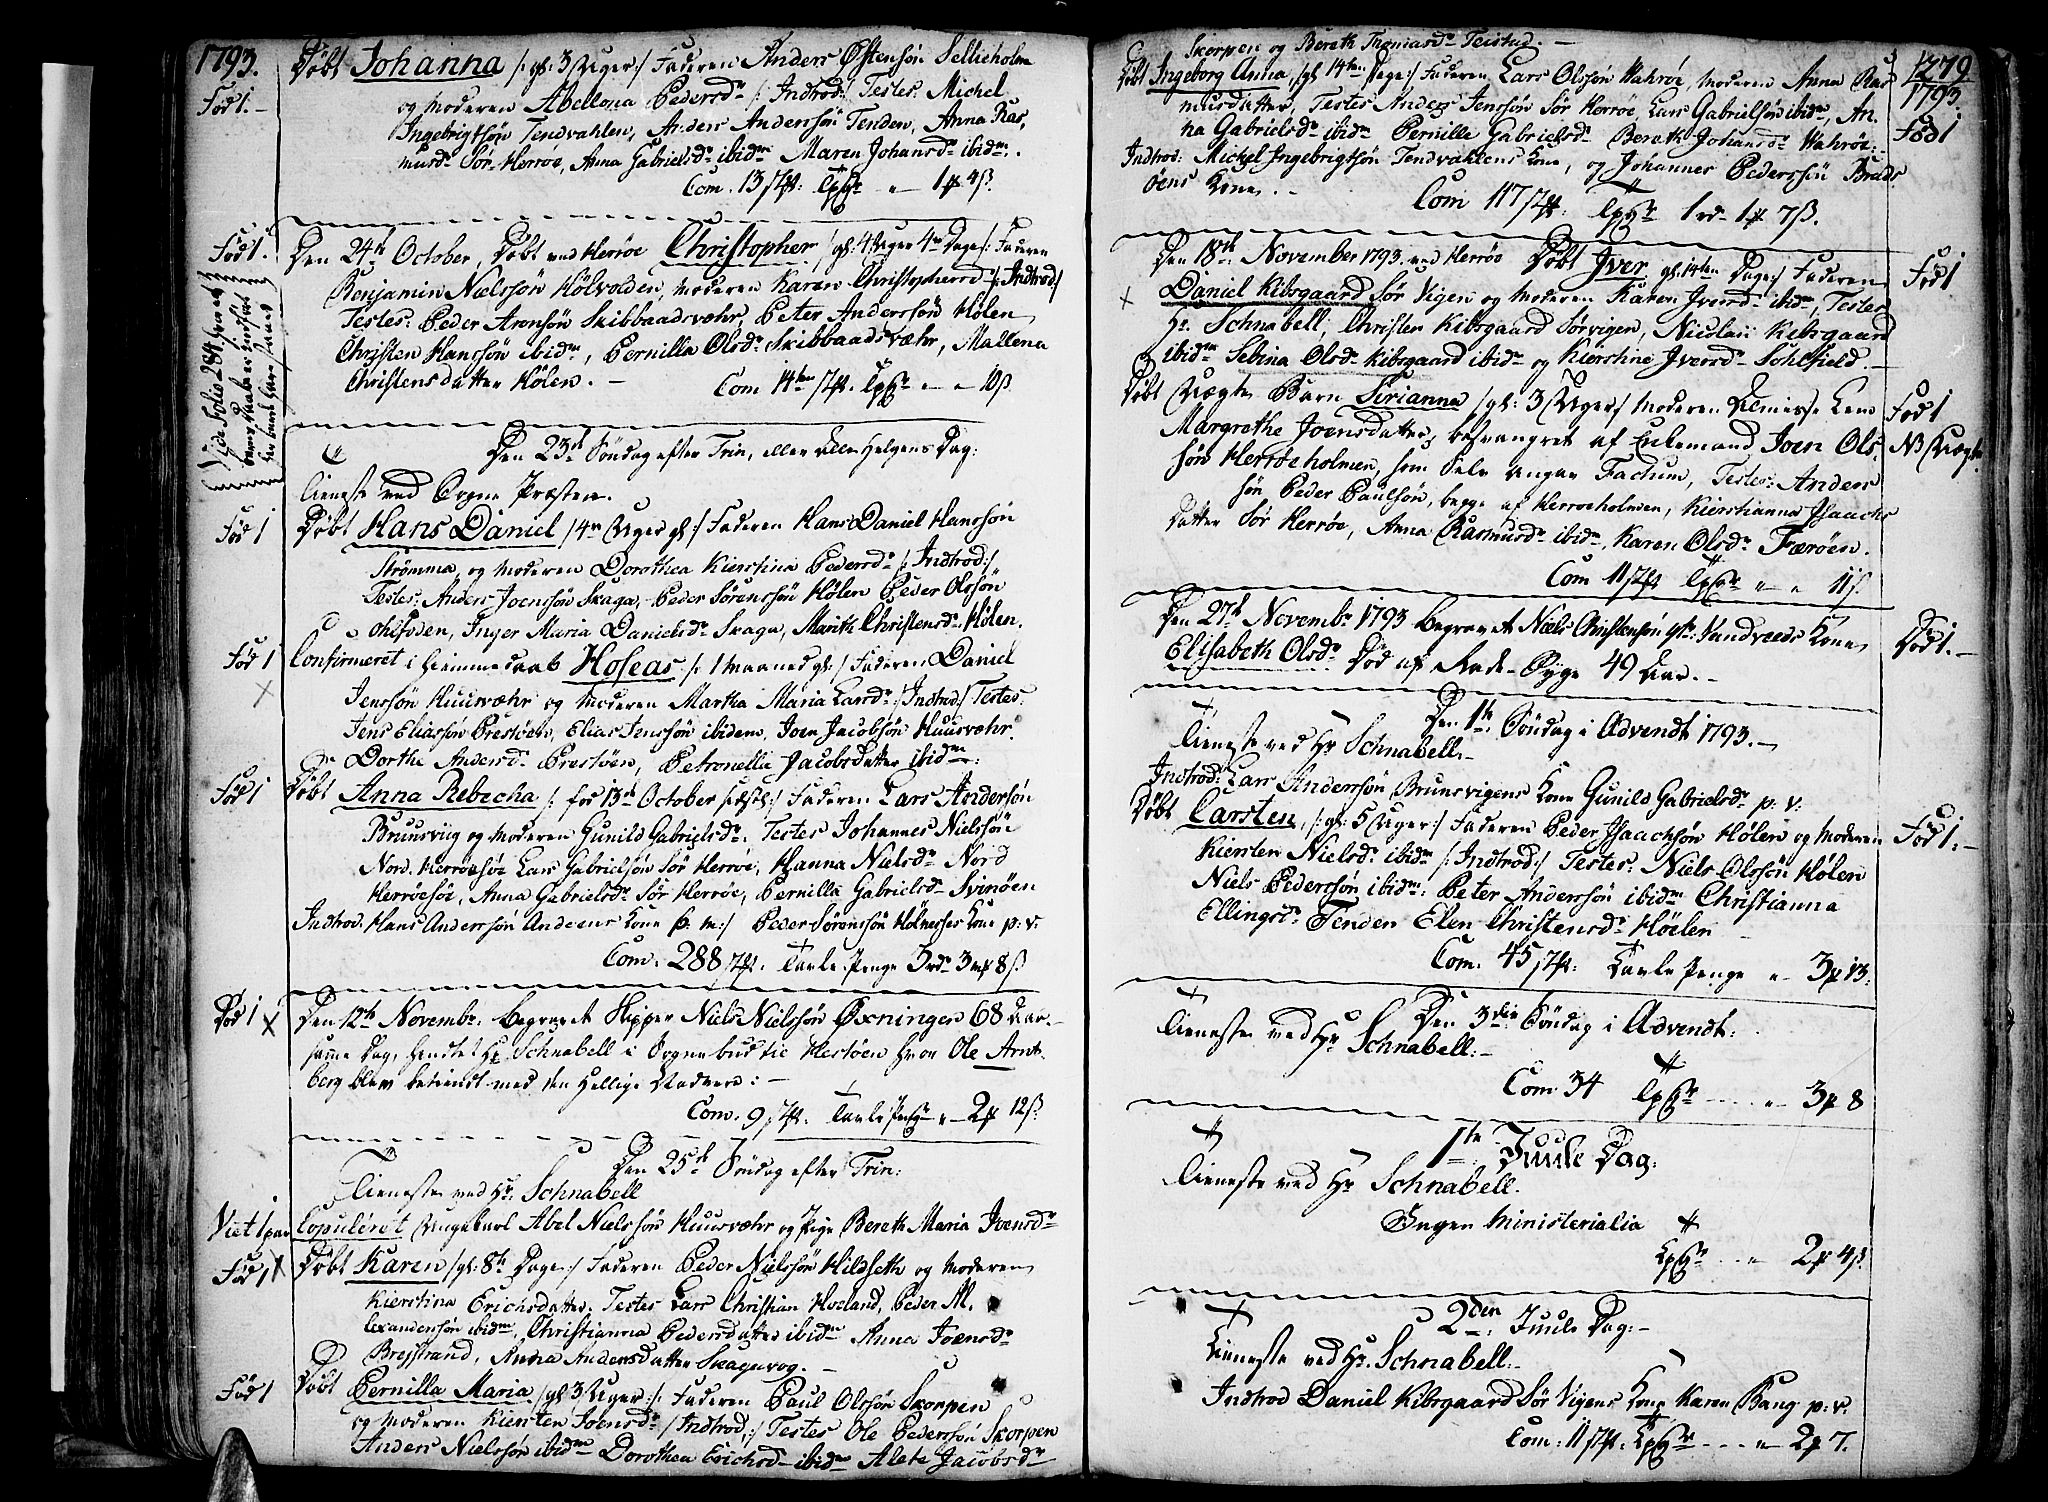 1793.
Døbt Johanna /: gl: 3 Uger :/ Faderen Anders Østensøn Sellieholm
Fød 1.-
og Moderen Abellona Pedersdr /: Indtrod :/ Testes: Michel
Ingebrigtsøn Tendvahlen, Anders Anderssøn Tenden, Anna Ras,
musdr Sør-Herrøe, Anna Gabrielsdr ibidm Maren Johansdr ibidm.
Com. 13
1 4ß.
Fød 1.
Den 24de October, Døbt ved Herrøe Christopher /: gl: 4 Uger 4re Dage :/ Faderen
Benjamin Nielssøn Hølvolden, Moderen Karen Christophersd /: Indtrod :/
Testes: Peder Aronsøn Skibbaadsvæhr, Peter Anderssøn Hølen
Christen Hanssøn ibidm, Pernilla Olsdr Skibbaadsvæhr, Mallena
Christensdatter Hølen. - Com 14ten 10ß.
Vide Folio 284 hvor et
Den 23de Søndag efter Trin, eller Alle Helgens Dag:
Tieneste ved Sogne Præsten.
Fød 1
Døbt Hans Daniel /: 4re Uger gl :/ Faderen Hans Daniel Hanssøn
Strømma, og Moderen Dorothea Kierstina Pedersdr /: Indtrod :/
Testes: Anders Joenssøn Skaga, Peder Sørenssøn Hølen Peder Olssøn
Inger Maria Danielsdr Skaga, Marith Christensdr Hølen.
Fød 1
Confirmeret i Hiemmedaab Hoseas /: 1 Maaned gl :/ Faderen Daniel
Jenssøn Huusvæhr og Moderen Martha Maria Larsdr /: Indtrod :/ Testes:
Jens Eliassøn Prestøen, Elias Jenssøn ibidem, Joen Jacobsøn Huusvæhr.
Dorthe Andersdr Prestøen, Petronellia Jacobsdatter ibidm:
Fød 1
Døbt Anna Rebecha /: fød 13de October :/ Faderen Lars Anderssøn
Bruunsviig og Moderen Gunild Gabrielsdr. Testes Johannes Nielssøn
Nord. Herrøesøe Lars Gabrielsøn Sør Herrøe, Hanna Nielsdr Nord
Herrøesøe, Anna Gabrielsdr Sør Herrøe, Pernilla Gabrielsdr Svinøen
Indtrod: Hans Anderssøn Andeens Kone p: m: / Peder Sørenssøn Hølnesses Kone p: v:
Com. 288 Tavle Penge 3rd 3 8ß
Død 1
Den 12te Novembr. Begravet Skipper Niels Nielssøn Øxningen 68 Aar.
samme Dag, hendtet Hr Schnabell i Sognebud til Hestøen hvor Ole Arnt-
berg blev betient med den Hellige Nadvere: -
Com. 9 Tavle Penge - 2 12ß.
Den 25de Søndag efter Trin:
Tieneste ved Hr. Schnabell
Viet 1 par
Copuleret Ungekarl Abel Nielssøn Huusvæhr og Pige Bereth Maria Joensdr
Fød 1
Døbt Karen /: gl: 8te Dage :/ Faderen Peder Nielssøn Hildseth og Moderen
Kierstina Erichsdatter. Testes Lars Christian Hoeland, Peder Al.
exandersøn ibidm, Christianna Pedersdatter ibidm Anna Joensdr
Brejstrand, Anna Andersdatter Skagavog. -
Fød 1
Døbt Pernilla Maria /: gl: 3 Uger :/ Faderen Paul Olssøn Skorpen
og Moderen Kiersten Joensdr /: Indtrod :/ Testes Ole Pederssøn Skorpen
Anders Nielssøn ibidm Dorothea Erichsd ibidm Alete Jacobsdr
Skorpen og Bereth Thomasdr Teistad. -
1279
1793.
Døbt Ingeborg Anna, /: gl 14ten Dage :/ Faderen Lars Olssøn Wahrøe, Moderen Anna Ras
musdatter, Testes Anders Jenssøn Sør Herrøe Lars Gabrielssøn ibidm, An.
Fød 1
na Gabrielsdr ibidm Pernille Gabrielsdr Bereth Johansdr Wahrøe:
Indtrod: Michel Ingebrigtsøn Tendvahlens Kone, og Johannes Pederssøn Brads
øens Kone. -
Com 117 1rd 1 7ß.
Den 18de November 1793 ved Herrøe Døbt Jver gl. 14ten Dage :/ Faderen
Fød 1
Daniel Kibsgaard Sør Vigen og Moderen Karen Jversd ibidm, Testes
Hr. Schnabell, Christen Kibsgaard Sørvigen, Nicolaii Kibsgaard
ibidm Sebina Olsdr Kibsgaard ibidm og Kierstine Jversdr Sohlfield. -
Døbt Uægte Barn Sirianna /: gl: 3 Uger :/ Moderen
Fød 1
NB Uægte
Margrethe Joensdatter, besvangret af Enkemand Joen Ols,
søn Herrøeholmen, som selv angav Factum, Testes: Anders
søn Peder Paulsøn, begge af Herrøeholmen, Kierstianna Jsaachs
datter Sør Herrøe, Anna Rasmusdr ibidm, Karen Olsdr Færøen.
Com 11 11ß.
Den 27de Novembr 1793 Begravet Niels Christensøn Kone
Død 1. -
Elisabeth Olsdr Død af 49 Aar. -
Den 1te Søndag i Advendt 1793. -
Tieneste ved Hr Schnabell. -
Indtrod: Lars Anderssøn Brunsvigens Kone Gunild Gabrielsdr p: v:
Døbt Carsten, /: gl: 5 Uger :/ Faderen Peder Jsaachsøn Hølen og Moderen
Fød 1: -
Kiersten Nielsdr ibidm /: Indtrod :/ Testes: Niels Olssøn Hølen
Niels Pederssøn ibidm: Peter Anderssøn ibidm Christianna
Ellingsdr Tenden Elen Christensdr Høelen
Com. 45 Tavle Penge 3 13:
Den 3die Søndag i Advendt:
Tieneste ved Hr Schnabell: -
Com. 34 3 8
1te Juule Dag:
Tieneste ved Hr Schnabell.
Ingen Ministerialia
2 4ß.
2den Juule Dag: -
Tieneste ved Hr. Schnabell: -
Indtrod Daniel Kibsgaard Sør Vigens Kone Karen Bang p: v:
Com: 11 2 7.